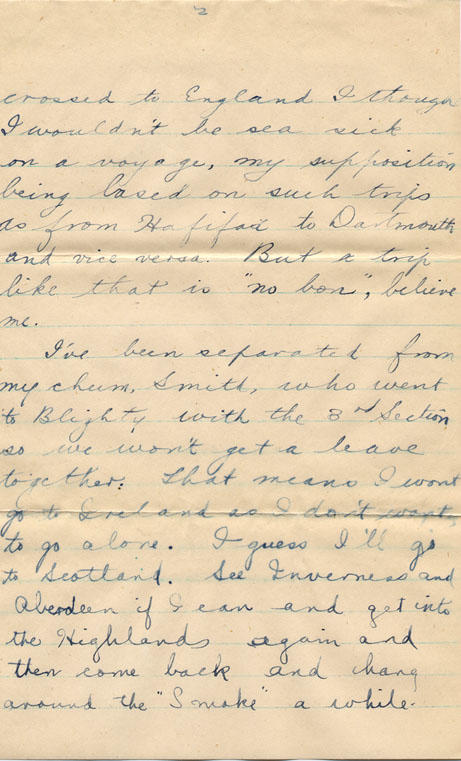 2
crossed to England I though
I wouldn't be sea sick
on a voyage, my supposition
being based on such trips
as from Hafifax to Dartmouth
and vice versa. But a trip
like that is "no bon", believe
me.
I've been separated from
my chum, Smith, who went
to Blighty with the 3rd Section
so we won't get a leave
together. That means I wont
go to Ireland as I don't want
to go alone. I guess I'll go
to Scotland. See Inverness and
Aberdeen if I can and get into
the Highlands again and
then come back and hang
around the "Smoke" a while.